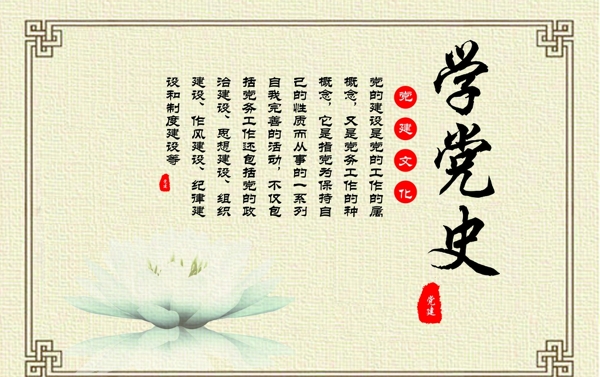 学党史
党建文化
党的建设是党的工作的属
概念，又是党务工作的种
概念，它是指党为保持自
己的性质而从事的一系列
自我完善的活动，不仅包
括党务工作还包括党的政
治建设、思想建设、组织
建设、作风建设、纪律建
设和制度建设等
党建
党建